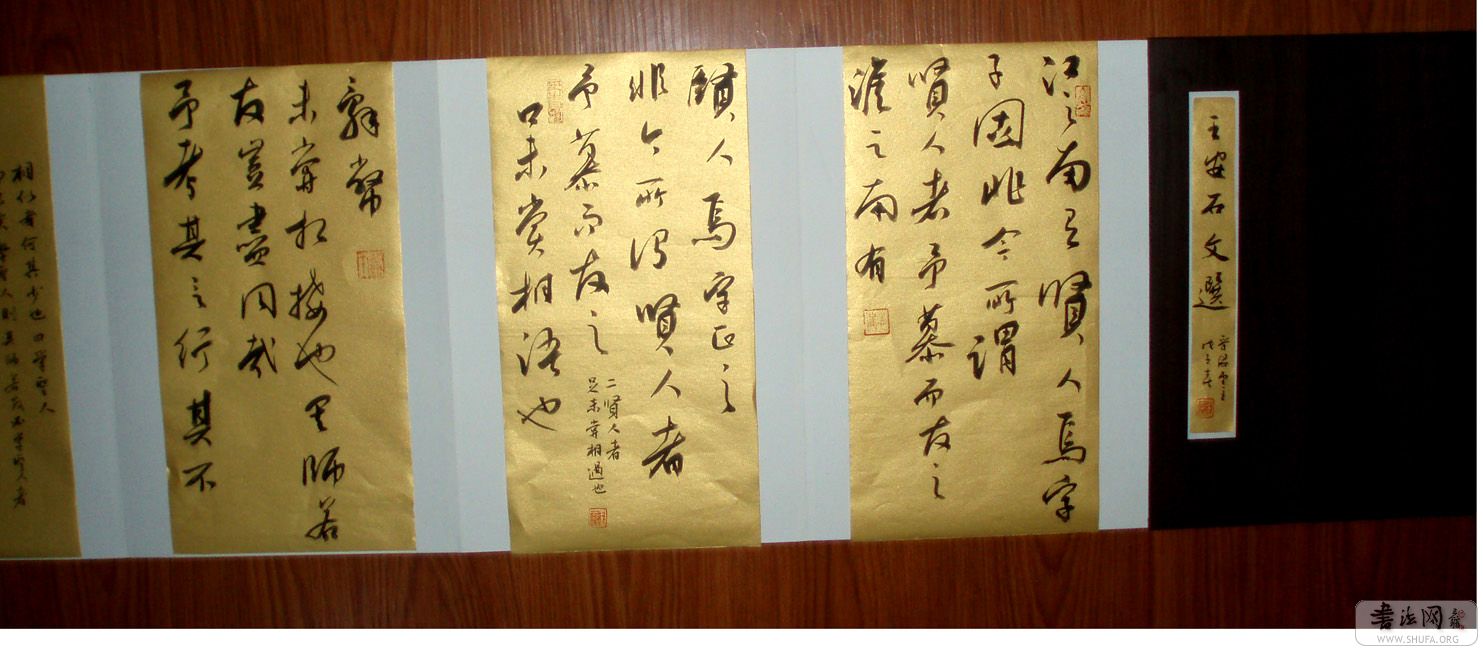 王安石文選
江之南有賢人焉字
子固非今所謂
賢人者予慕而友之
淮之南有
賢人焉字正之
非今所谓賢人者
予慕而友之
二賢人者
足未嘗相過也
口未嘗相語也
辭幣
未嘗相接也其師若
友豈盡同哉
予考其言行其不
相似者何其少也曰學聖人
學聖人則其師若友必學聖人者
書法网
WWW.SHUFA.ORG